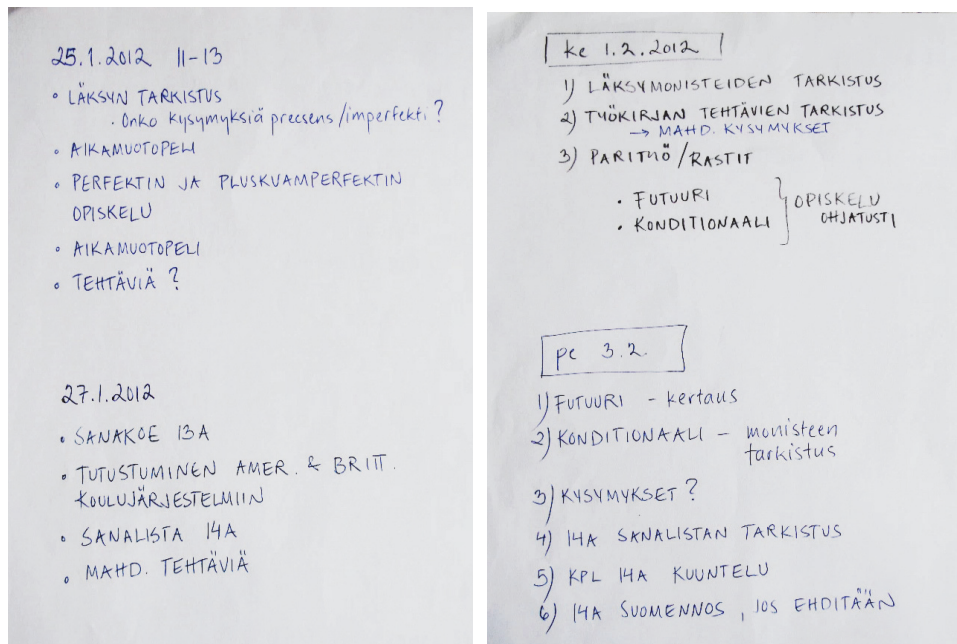 25.1.2012 11-13
• LÄKSYN TARKISTUS
• Onko kysymyksiä preesens/imperfekti?
• AIKAMUOTOPELI
• PERFEKTIN JA PLUSKVAMPERFEKTIN
OPISKELU
• AIKAMUOTOPELI
• TEHTÄVIÄ?
27.1.2012
• SANAKOE 13A
• TUTUSTUMINEN AMER. & BRITT.
KOULUJÄRJESTELMIIN
• SANALISTA 14A
• MAHD. TEHTÄVIÄ
ke 1.2.2012
1) LÄKSYMONISTEIDEN TARKISTUS
2) TYÖKIRJAN TEHTÄVIEN TARKISTUS
→ MAHD. KYSYMYKSET
3) PARITYÖ/RASTIT
• FUTUURI
• KONDITIONAALI
OPISKELU
OHJATUSTI
pe 3.2.
1) FUTUURI - kertaus
2) KONDITIONAALI - monisteen
tarkistus
3) KYSYMYKSET?
4) 14A SANALISTAN TARKISTUS
5) KPL 14A KUUNTELU
6) 14A SUOMENNOS, JOS EHDITÄÄN